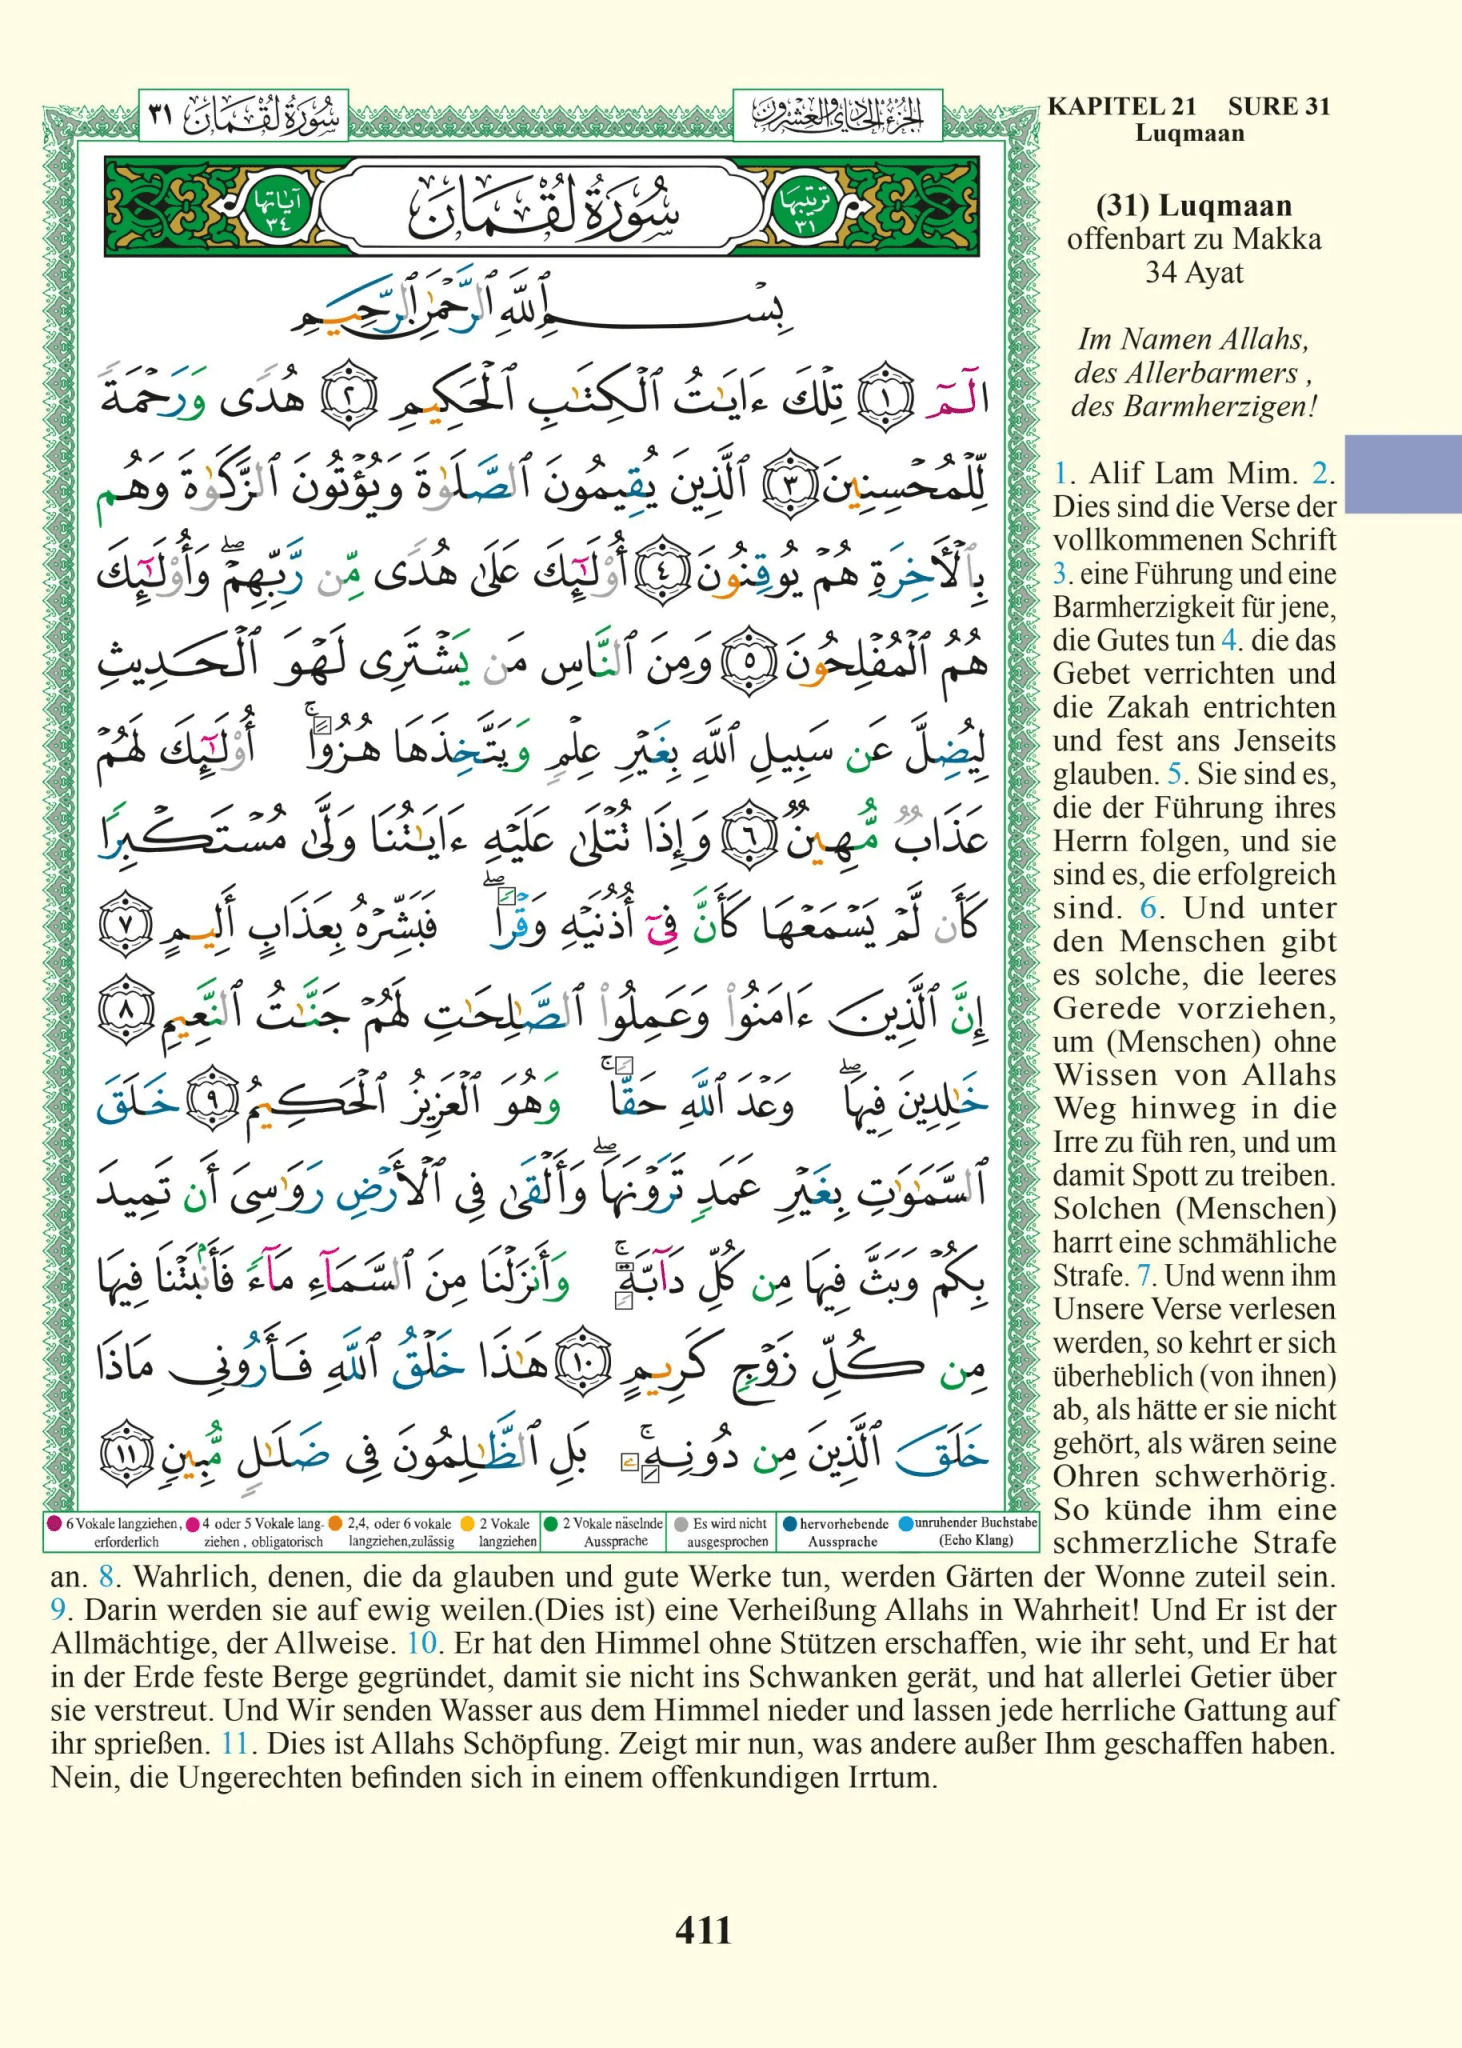 سُورَةُ لُقْمَان ٣١
الجُزْءُ الحَادِي وَالعِشْرُون
KAPITEL 21 SURE 31
Luqmaan
ترتيبها ٣١
سُورَةُ لُقْمَان
آياتها ٣٤
بِسْمِ ٱللَّهِ ٱلرَّحْمَٰنِ ٱلرَّحِيمِ
الٓمٓ ١ تِلْكَ ءَايَٰتُ ٱلْكِتَٰبِ ٱلْحَكِيمِ ٢ هُدًى وَرَحْمَةً
لِّلْمُحْسِنِينَ ٣ ٱلَّذِينَ يُقِيمُونَ ٱلصَّلَوٰةَ وَيُؤْتُونَ ٱلزَّكَوٰةَ وَهُم
بِٱلْأَخِرَةِ هُمْ يُوقِنُونَ ٤ أُوْلَٰٓئِكَ عَلَىٰ هُدًى مِّن رَّبِّهِمْ ۖ وَأُوْلَٰٓئِكَ
هُمُ ٱلْمُفْلِحُونَ ٥ وَمِنَ ٱلنَّاسِ مَن يَشْتَرِى لَهْوَ ٱلْحَدِيثِ
لِيُضِلَّ عَن سَبِيلِ ٱللَّهِ بِغَيْرِ عِلْمٍ وَيَتَّخِذَهَا هُزُوًا ۚ أُوْلَٰٓئِكَ لَهُمْ
عَذَابٌ مُّهِينٌ ٦ وَإِذَا تُتْلَىٰ عَلَيْهِ ءَايَٰتُنَا وَلَّىٰ مُسْتَكْبِرًا
كَأَن لَّمْ يَسْمَعْهَا كَأَنَّ فِىٓ أُذُنَيْهِ وَقْرًا ۖ فَبَشِّرْهُ بِعَذَابٍ أَلِيمٍ ٧
إِنَّ ٱلَّذِينَ ءَامَنُوا۟ وَعَمِلُوا۟ ٱلصَّٰلِحَٰتِ لَهُمْ جَنَّٰتُ ٱلنَّعِيمِ ٨
خَٰلِدِينَ فِيهَا ۖ وَعْدَ ٱللَّهِ حَقًّا ۚ وَهُوَ ٱلْعَزِيزُ ٱلْحَكِيمُ ٩ خَلَقَ
ٱلسَّمَٰوَٰتِ بِغَيْرِ عَمَدٍ تَرَوْنَهَا ۖ وَأَلْقَىٰ فِى ٱلْأَرْضِ رَوَٰسِىَ أَن تَمِيدَ
بِكُمْ وَبَثَّ فِيهَا مِن كُلِّ دَآبَّةٍ ۚ وَأَنزَلْنَا مِنَ ٱلسَّمَآءِ مَآءً فَأَنۢبَتْنَا فِيهَا
مِن كُلِّ زَوْجٍ كَرِيمٍ ١٠ هَٰذَا خَلْقُ ٱللَّهِ فَأَرُونِى مَاذَا
خَلَقَ ٱلَّذِينَ مِن دُونِهِۦ ۚ بَلِ ٱلظَّٰلِمُونَ فِى ضَلَٰلٍ مُّبِينٍ ١١
6 Vokale langziehen, erforderlich
4 oder 5 Vokale lang-ziehen , obligatorisch
2,4, oder 6 vokale langziehen,zulässig
2 Vokale langziehen
2 Vokale näselnde Aussprache
Es wird nicht ausgesprochen
hervorhebende Aussprache
unruhender Buchstabe (Echo Klang)
(31) Luqmaan
offenbart zu Makka
34 Ayat
Im Namen Allahs,
des Allerbarmers ,
des Barmherzigen!
1. Alif Lam Mim. 2.
Dies sind die Verse der
vollkommenen Schrift
3. eine Führung und eine
Barmherzigkeit für jene,
die Gutes tun 4. die das
Gebet verrichten und
die Zakah entrichten
und fest ans Jenseits
glauben. 5. Sie sind es,
die der Führung ihres
Herrn folgen, und sie
sind es, die erfolgreich
sind. 6. Und unter
den Menschen gibt
es solche, die leeres
Gerede vorziehen,
um (Menschen) ohne
Wissen von Allahs
Weg hinweg in die
Irre zu füh ren, und um
damit Spott zu treiben.
Solchen (Menschen)
harrt eine schmähliche
Strafe. 7. Und wenn ihm
Unsere Verse verlesen
werden, so kehrt er sich
überheblich (von ihnen)
ab, als hätte er sie nicht
gehört, als wären seine
Ohren schwerhörig.
So künde ihm eine
schmerzliche Strafe
an. 8. Wahrlich, denen, die da glauben und gute Werke tun, werden Gärten der Wonne zuteil sein.
9. Darin werden sie auf ewig weilen.(Dies ist) eine Verheißung Allahs in Wahrheit! Und Er ist der
Allmächtige, der Allweise. 10. Er hat den Himmel ohne Stützen erschaffen, wie ihr seht, und Er hat
in der Erde feste Berge gegründet, damit sie nicht ins Schwanken gerät, und hat allerlei Getier über
sie verstreut. Und Wir senden Wasser aus dem Himmel nieder und lassen jede herrliche Gattung auf
ihr sprießen. 11. Dies ist Allahs Schöpfung. Zeigt mir nun, was andere außer Ihm geschaffen haben.
Nein, die Ungerechten befinden sich in einem offenkundigen Irrtum.
411